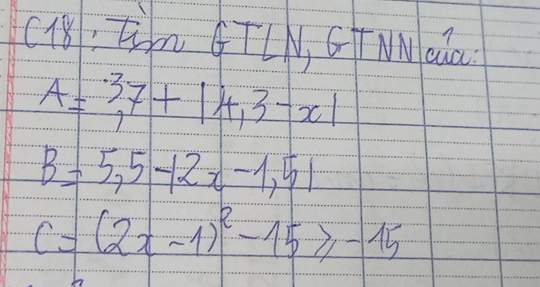 C18: Tìm GTLN, GTNN của:
A = 3,7 + |4,3 - x|
B = 5,5 - |2x - 1,5|
C = (2x - 1)² - 15 ⩾ - 15